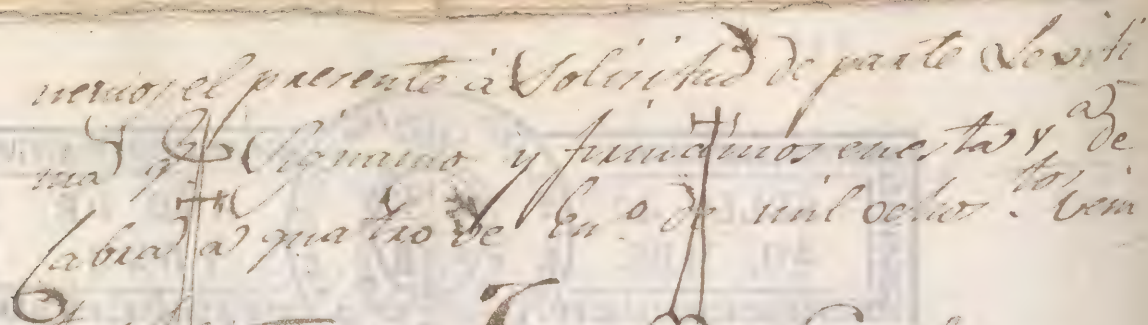 nemos el presente á Solicitud de parte Lexiti
ma q.e Signamos y firmamos en esta v.a de
Cabra a quatro de En.o de mil ochos.tos vein